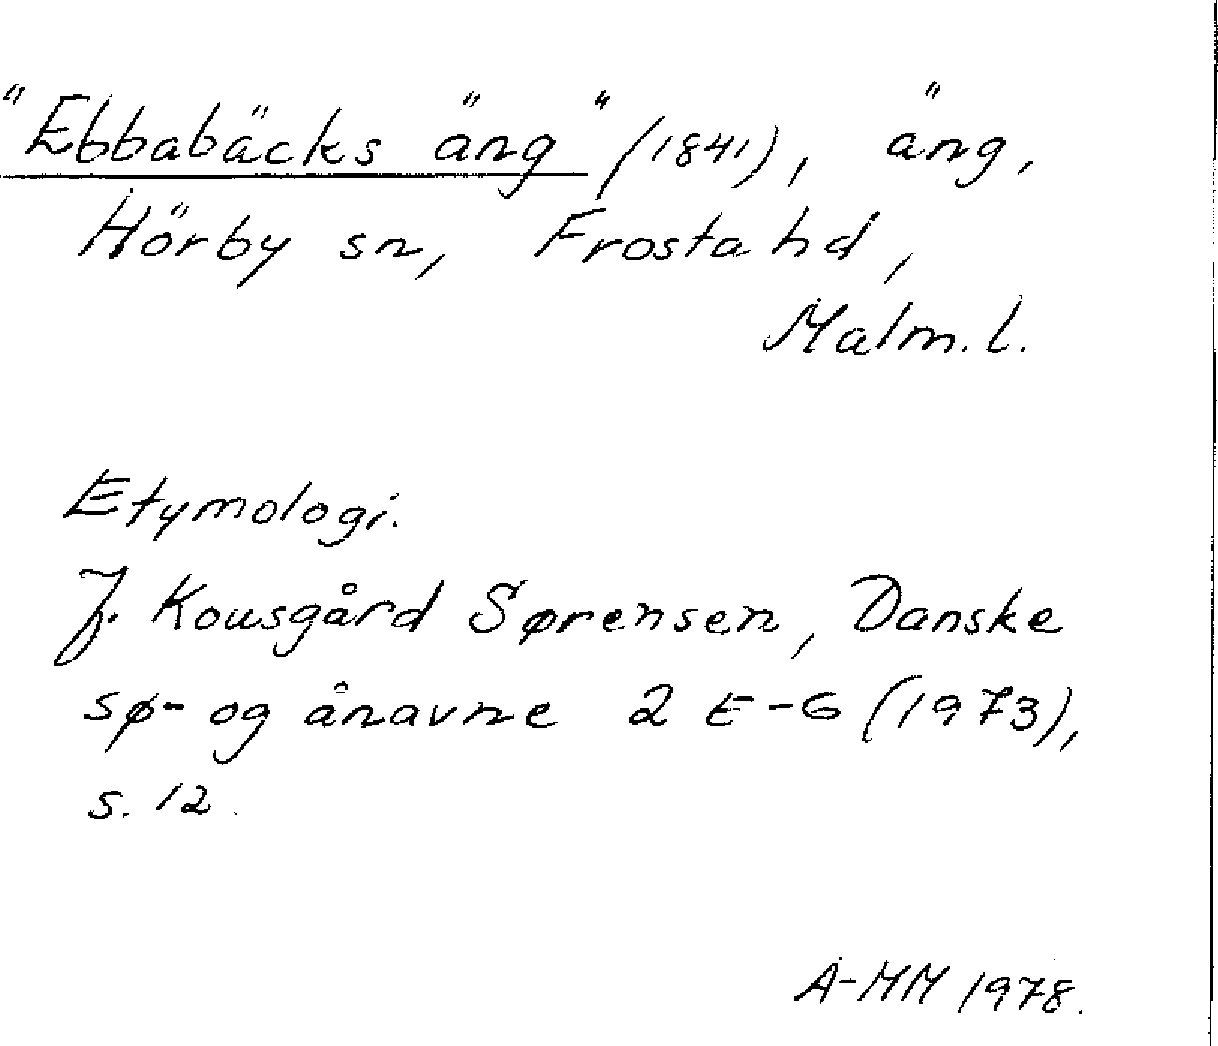 "Ebbabäcks äng" (1841), äng,
Hörby sn, Frosta hd,
Malm. l.
Etymologi.
J. Kousgård Sørensen, Danske
sø- og ånavne 2 E-G (1973),
s. 12.
A-MM 1978.